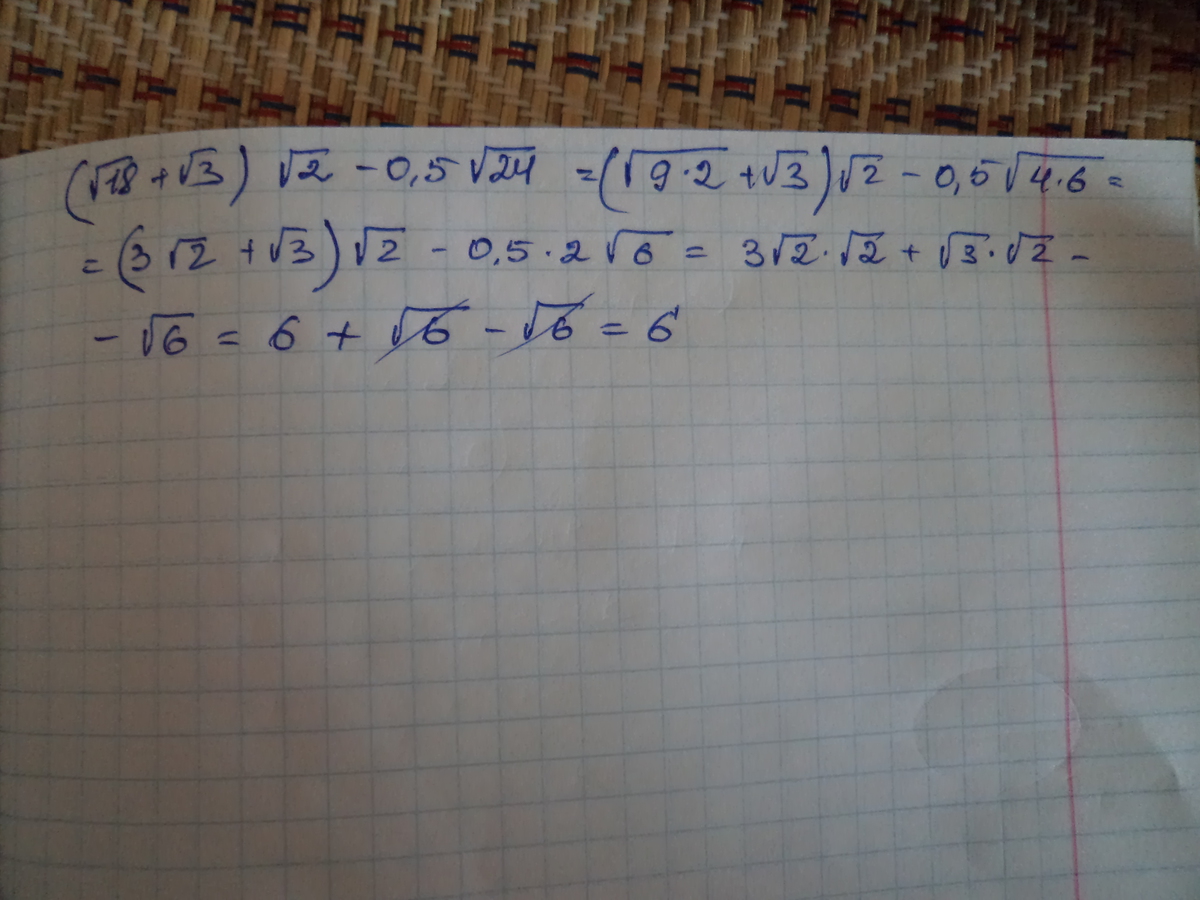 (√18 + √3) √2 - 0,5 √24 = (√9·2 + √3) √2 - 0,5 √4·6 =
= (3 √2 + √3) √2 - 0,5 · 2 √6 = 3√2 · √2 + √3 · √2 -
- √6 = 6 + √6 - √6 = 6